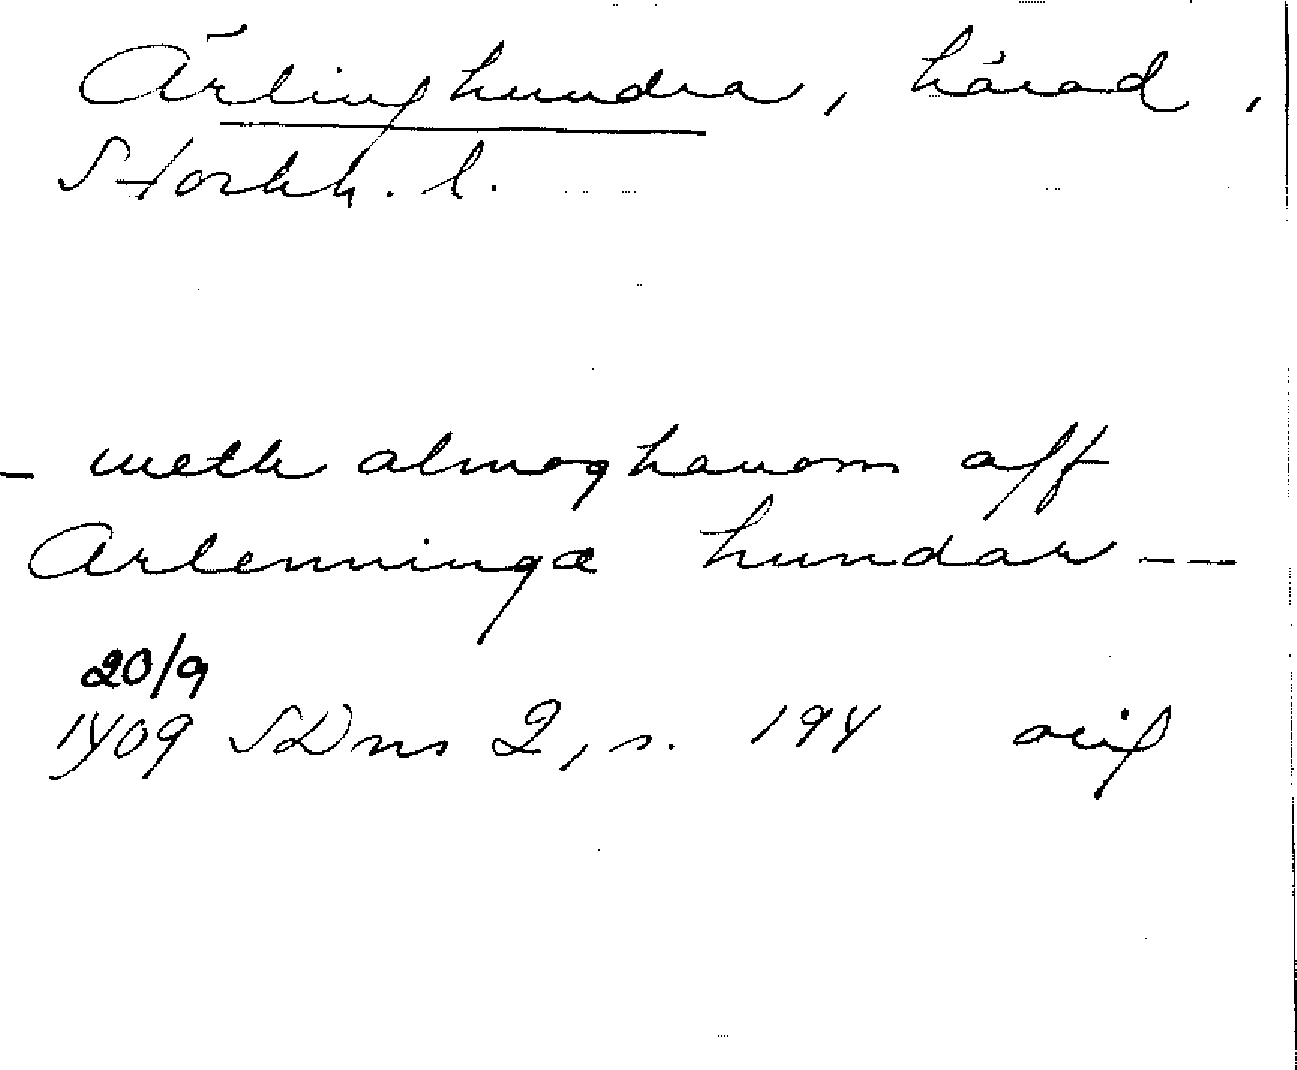 Ärlinghundra, härad,
Stockh. l.
- meth almoghanom aff
Arlenninga hundar ---
20/9
1409 SDns 2, s. 194 orig